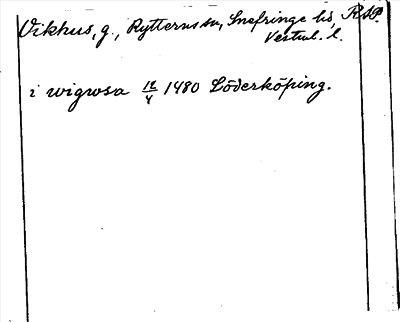 Vikhus, g., Rytterns sn, Snefringe hd, RAP
Vestml. l.
i wigwsa 12/4 1480 Söderköping.